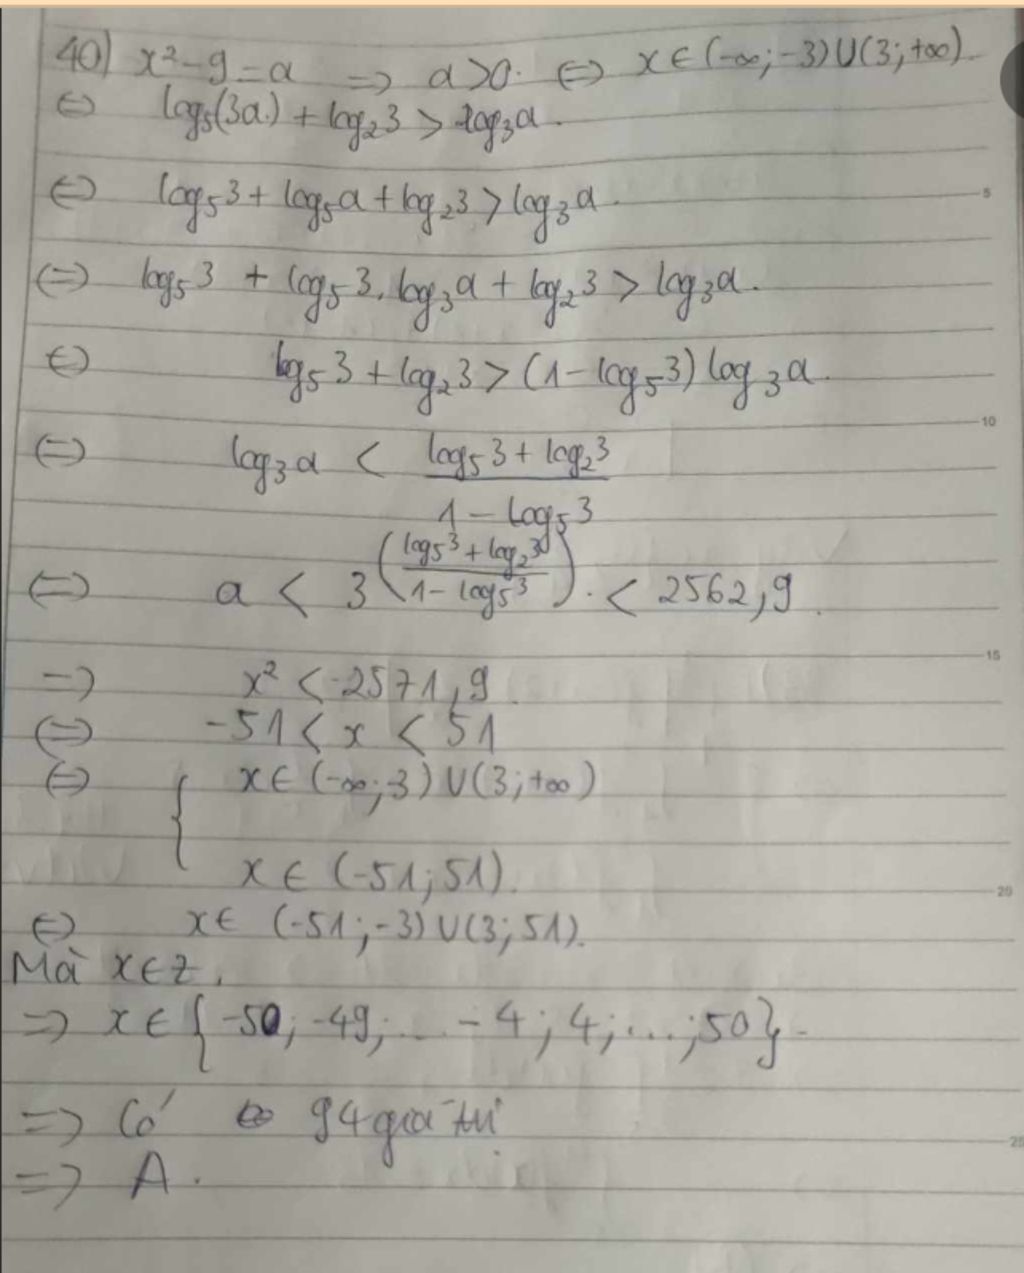 40) x² - 9 = a ⇒ a > 0. ⇔ x ∈ (-∞; -3) ∪ (3; +∞)
⇔ log₅(3a) + log₂3 > log₃a.
⇔ log₅3 + log₅a + log₂3 > log₃a.
⇔ log₅3 + log₅3. log₃a + log₂3 > log₃a.
⇔ log₅3 + log₂3 > (1 - log₅3) log₃a.
⇔ log₃a < (log₅3 + log₂3)/(1 - log₅3)
⇔ a < 3^((log₅3 + log₂3)/(1 - log₅3)). < 2562,9.
⇒ x² < 2571,9
⇔ -51 < x < 51
⇔ { x ∈ (-∞; -3) ∪ (3; +∞)
x ∈ (-51; 51).
⇔ x ∈ (-51; -3) ∪ (3; 51).
Mà x ∈ Z,
⇒ x ∈ {-50; -49; ... -4; 4; ...; 50}.
⇒ Có 94 giá trị
⇒ A.
5
10
15
20
25